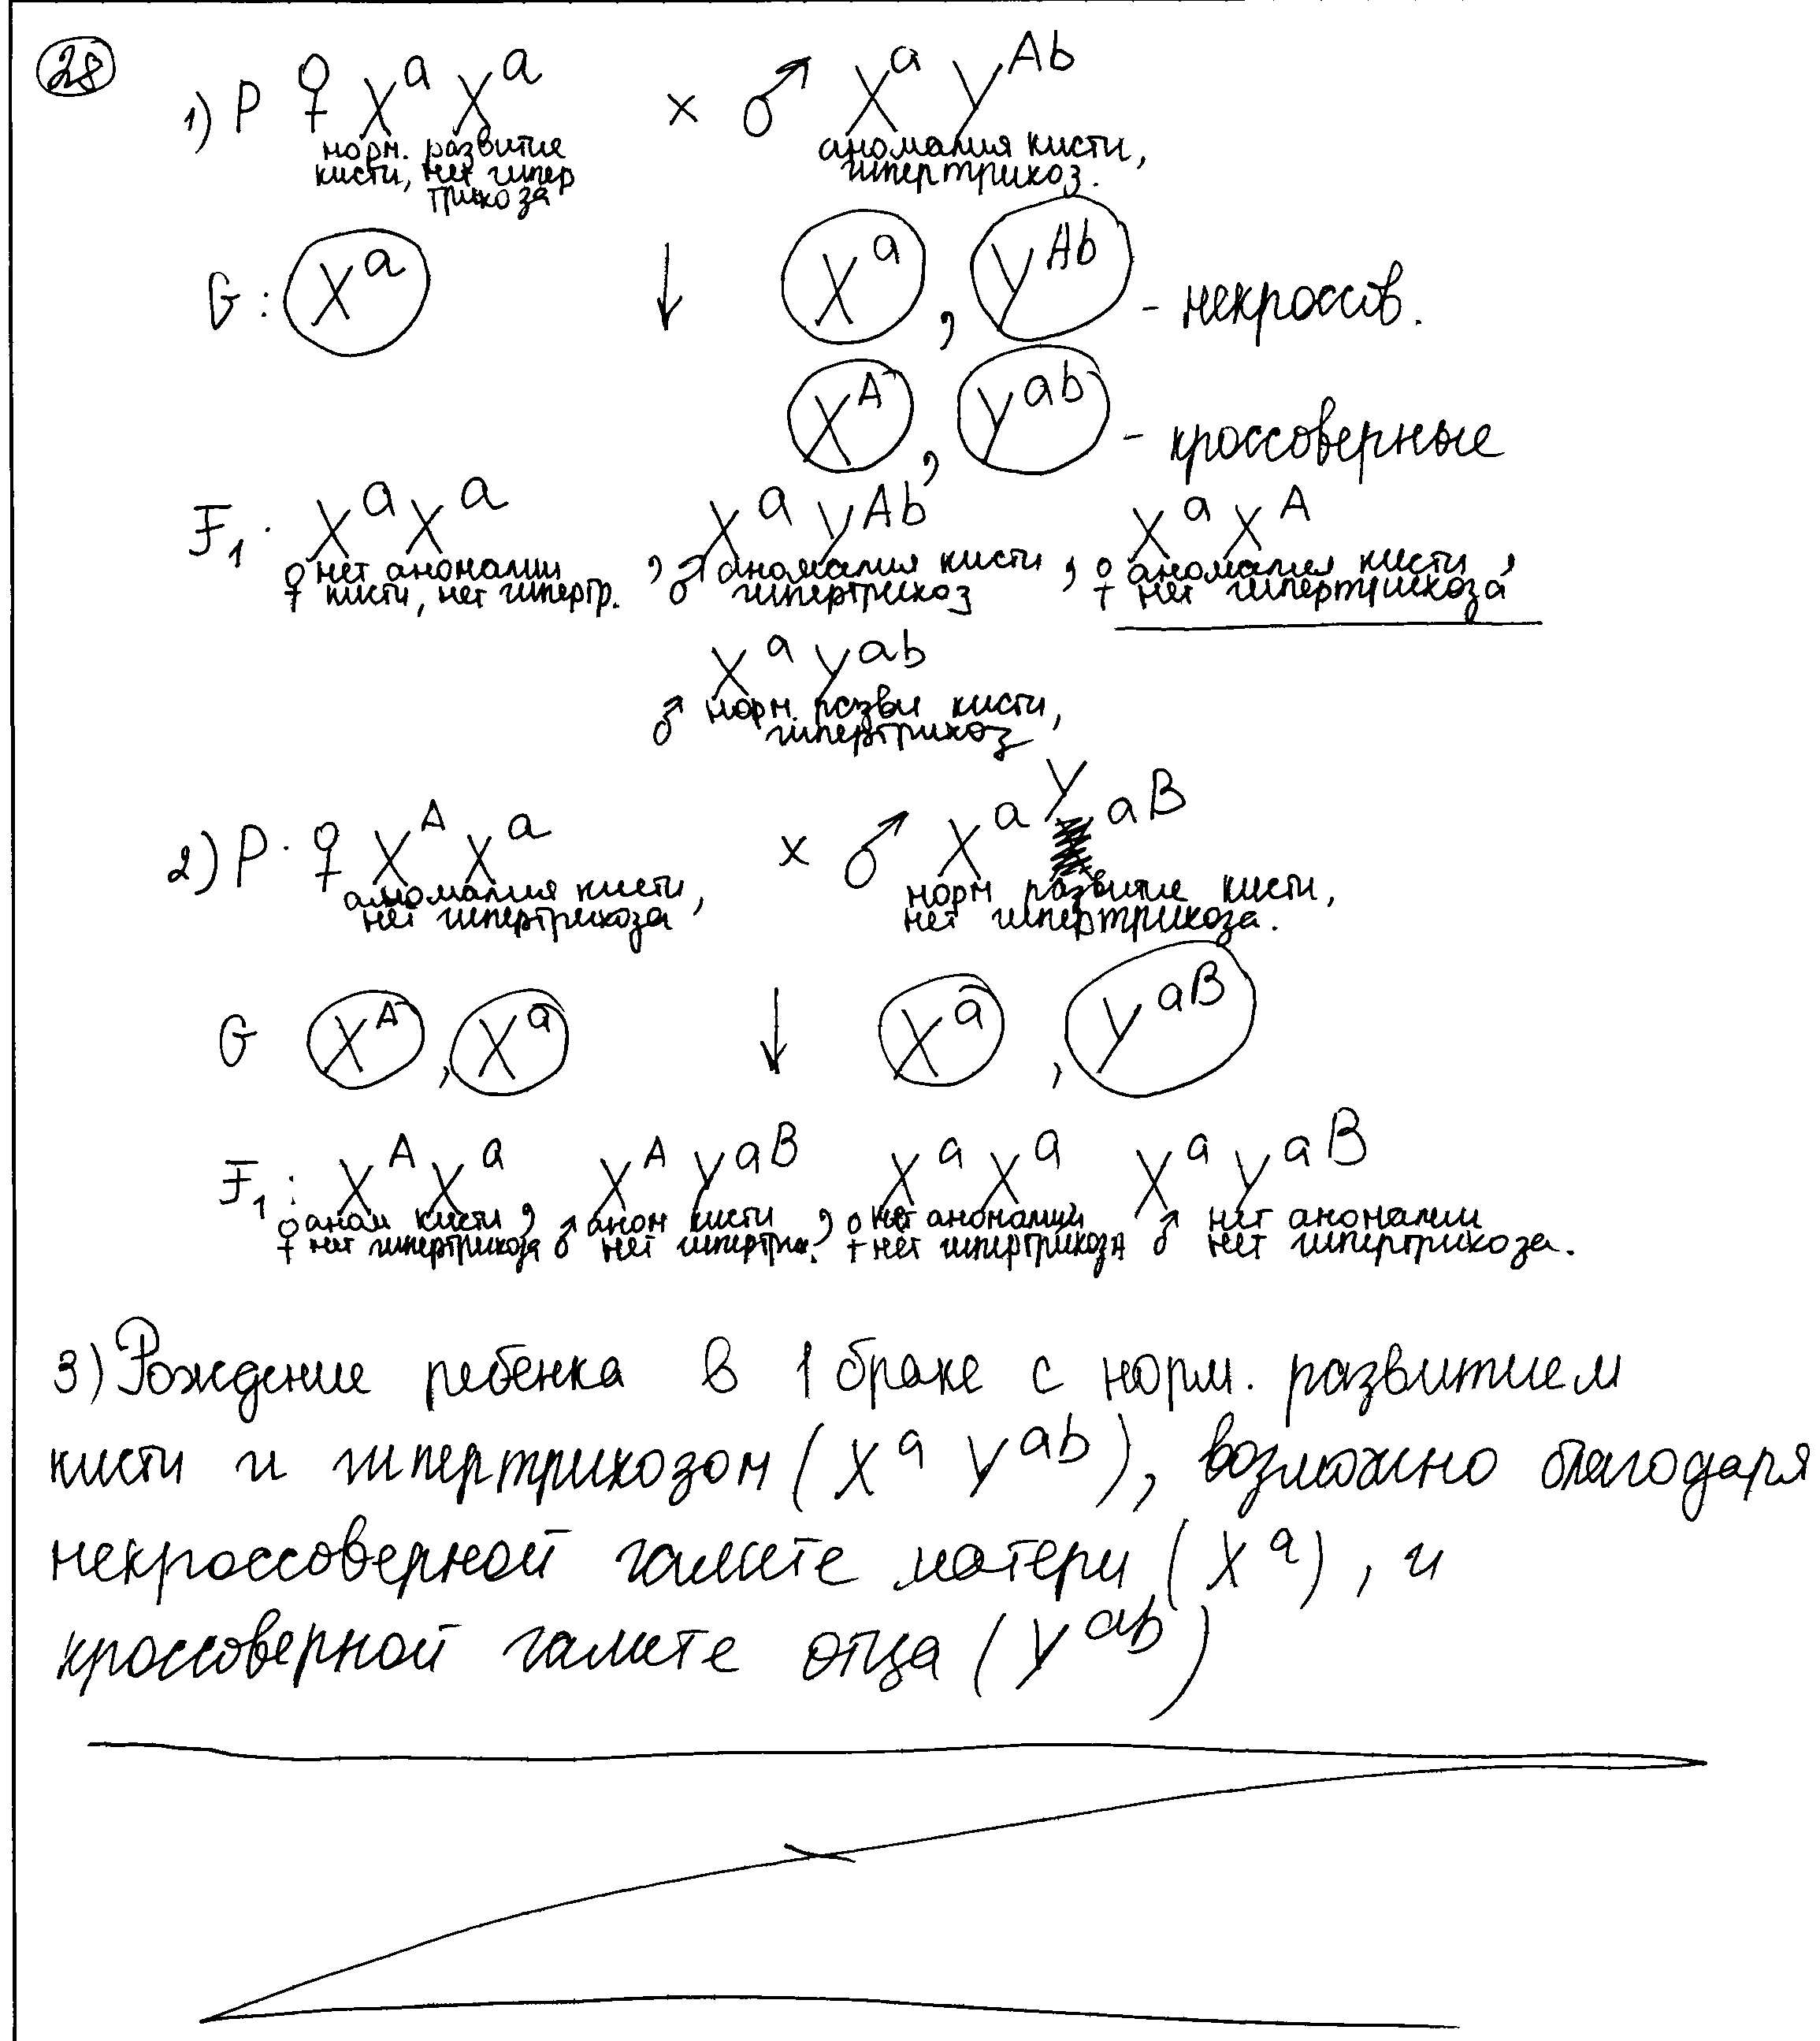 28
1) P ♀ X^a X^a × ♂ X^a Y^Ab
норм. развитие кисти, нет гипер трихоза
аномалия кисти, гипертрихоз.
G: X^a ↓ X^a, Y^Ab - некроссов.
X^A, Y^ab - кроссоверные
F1: X^a X^a, X^a Y^Ab, X^a X^A
♀ нет аномалии кисти, нет гипертр.
♂ аномалия кисти гипертрихоз
♀ аномалия кисти, нет гипертрихоза
X^a Y^ab
♂ норм. разви кисти, гипертрихоз
2) P. ♀ X^A X^a × ♂ X^a Y^aB
аномалия кисти, нет гипертрихоза
норм развитие кисти, нет гипертрихоза.
G X^A, X^a ↓ X^a, Y^aB
F1: X^A X^a X^A Y^aB X^a X^a X^a Y^aB
♀ аном кисти, нет гипертрихоза
♂ аном кисти, нет гипертрих.
♀ нет аномалии нет гипертрихоза
♂ нет аномалии нет гипертрихоза.
3) Рождение ребенка в 1 браке с норм. развитием
кисти и гипертрихозом (X^a Y^ab), возможно благодаря
некроссоверной гамете матери (X^a), и
кроссоверной гамете отца (Y^ab)